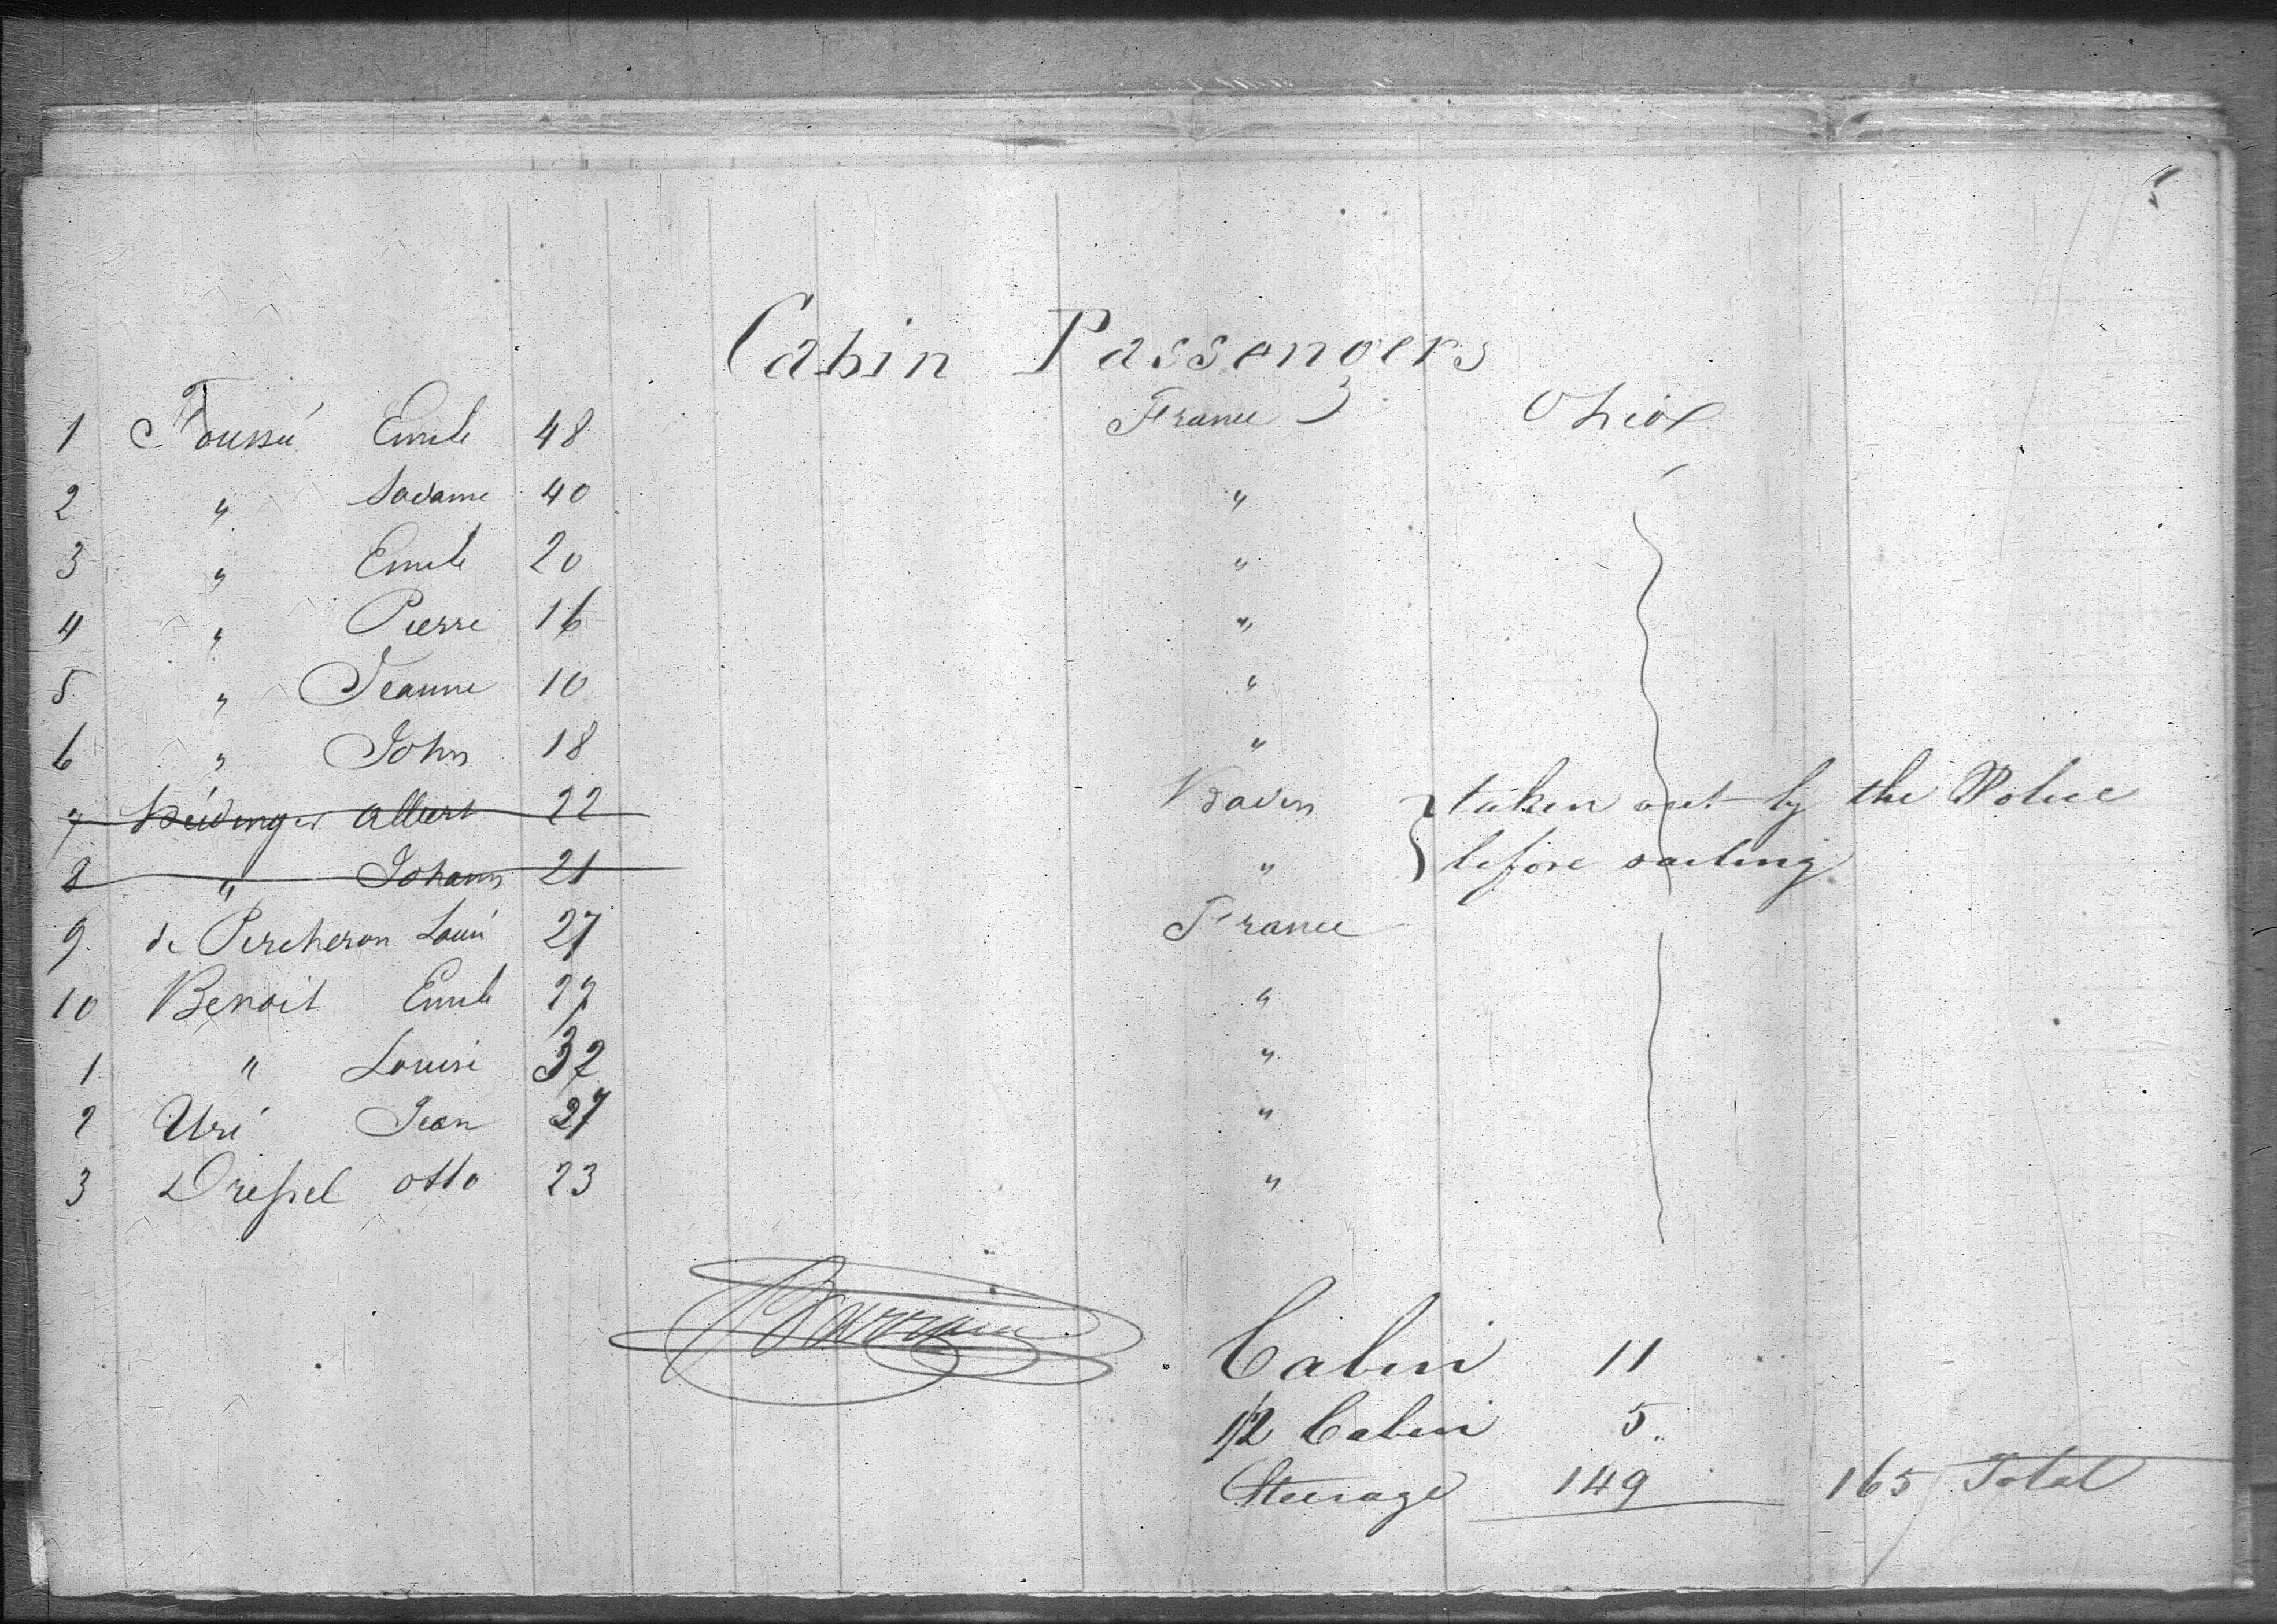 Cabin Passengers
1 Toussé Emile 48 France Ohio
2 " Madame 40 "
3 " Emile 20 "
4 " Pierre 16 "
5 " Jeanne 10 "
6 " John 18 "
7 Albert 22 Baden { taken out by the Police
8 " Johann 21 " { before sailing
9 de Percheron Louis 27 France
10 Benoit Emile 27 "
1 " Louise 32 "
2 Uri Jean 27 "
3 Dressel Otto 23 "
Cabin 11
1/2 Cabin 5.
Steerage 149 165 Total